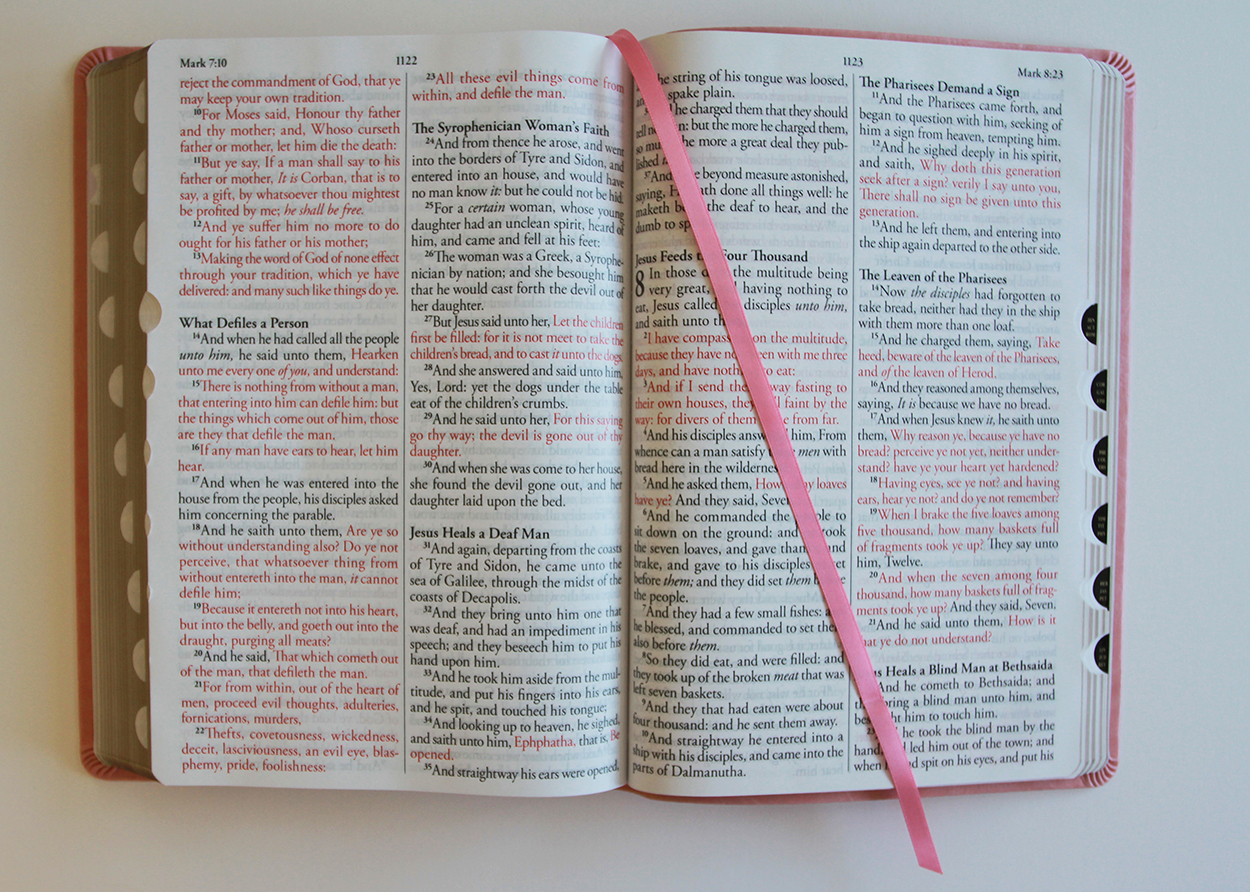 Mark 7:10
1122
reject the commandment of God, that ye
may keep your own tradition.
10For Moses said, Honour thy father
and thy mother; and, Whoso curseth
father or mother, let him die the death:
11But ye say, If a man shall say to his
father or mother, It is Corban, that is to
say, a gift, by whatsoever thou mightest
be profited by me; he shall be free.
12And ye suffer him no more to do
ought for his father or his mother;
13Making the word of God of none effect
through your tradition, which ye have
delivered: and many such like things do ye.
What Defiles a Person
14And when he had called all the people
unto him, he said unto them, Hearken
unto me every one of you, and understand:
15There is nothing from without a man,
that entering into him can defile him: but
the things which come out of him, those
are they that defile the man.
16If any man have ears to hear, let him
hear.
17And when he was entered into the
house from the people, his disciples asked
him concerning the parable.
18And he saith unto them, Are ye so
without understanding also? Do ye not
perceive, that whatsoever thing from
without entereth into the man, it cannot
defile him;
19Because it entereth not into his heart,
but into the belly, and goeth out into the
draught, purging all meats?
20And he said, That which cometh out
of the man, that defileth the man.
21For from within, out of the heart of
men, proceed evil thoughts, adulteries,
fornications, murders,
22Thefts, covetousness, wickedness,
deceit, lasciviousness, an evil eye, blas-
phemy, pride, foolishness:
23All these evil things come from
within, and defile the man.
The Syrophenician Woman's Faith
24And from thence he arose, and went
into the borders of Tyre and Sidon, and
entered into an house, and would have
no man know it: but he could not be hid.
25For a certain woman, whose young
daughter had an unclean spirit, heard of
him, and came and fell at his feet:
26The woman was a Greek, a Syrophe-
nician by nation; and she besought him
that he would cast forth the devil out of
her daughter.
27But Jesus said unto her, Let the children
first be filled: for it is not meet to take the
children's bread, and to cast it unto the dogs.
28And she answered and said unto him,
Yes, Lord: yet the dogs under the table
eat of the children's crumbs.
29And he said unto her, For this saying
go thy way; the devil is gone out of thy
daughter.
30And when she was come to her house,
she found the devil gone out, and her
daughter laid upon the bed.
Jesus Heals a Deaf Man
31And again, departing from the coasts
of Tyre and Sidon, he came unto the
sea of Galilee, through the midst of the
coasts of Decapolis.
32And they bring unto him one that
was deaf, and had an impediment in his
speech; and they beseech him to put his
hand upon him.
33And he took him aside from the mul-
titude, and put his fingers into his ears,
and he spit, and touched his tongue;
34And looking up to heaven, he sighed,
and saith unto him, Ephphatha, that is, Be
opened.
35And straightway his ears were opened,
1123
Mark 8:23
the string of his tongue was loosed,
spake plain.
he charged them that they should
tell no : but the more he charged them,
so the more a great deal they pub-
lished
37And beyond measure astonished,
saying, hath done all things well: he
maketh the deaf to hear, and the
dumb to
Jesus Feeds the Four Thousand
8 In those the multitude being
very great, having nothing to
eat, Jesus called disciples unto him,
and saith unto
2I have compassion on the multitude,
because they have been with me three
days, and have nothing to eat:
3And if I send them away fasting to
their own houses, they will faint by the
way: for divers of them from far.
4And his disciples answered him, From
whence can a man satisfy men with
bread here in the wilderness
5And he asked them, How many loaves
have ye? And they said, Seven
6And he commanded the people to
sit down on the ground: and took
the seven loaves, and gave and
brake, and gave to his disciples set
before them; and they did set them
the people.
7And they had a few small fishes:
he blessed, and commanded to set them
also before them.
8So they did eat, and were filled: and
they took up of the broken meat that was
left seven baskets.
9And they that had eaten were about
four thousand: and he sent them away.
10And straightway he entered into a
ship with his disciples, and came into the
parts of Dalmanutha.
The Pharisees Demand a Sign
11And the Pharisees came forth, and
began to question with him, seeking of
him a sign from heaven, tempting him.
12And he sighed deeply in his spirit,
and saith, Why doth this generation
seek after a sign? verily I say unto you,
There shall no sign be given unto this
generation.
13And he left them, and entering into
the ship again departed to the other side.
The Leaven of the Pharisees
14Now the disciples had forgotten to
take bread, neither had they in the ship
with them more than one loaf.
15And he charged them, saying, Take
heed, beware of the leaven of the Pharisees,
and of the leaven of Herod.
16And they reasoned among themselves,
saying, It is because we have no bread.
17And when Jesus knew it, he saith unto
them, Why reason ye, because ye have no
bread? perceive ye not yet, neither under-
stand? have ye your heart yet hardened?
18Having eyes, see ye not? and having
ears, hear ye not? and do ye not remember?
19When I brake the five loaves among
five thousand, how many baskets full
of fragments took ye up? They say unto
him, Twelve.
20And when the seven among four
thousand, how many baskets full of frag-
ments took ye up? And they said, Seven.
21And he said unto them, How is it
that ye do not understand?
Jesus Heals a Blind Man at Bethsaida
And he cometh to Bethsaida; and
bring a blind man unto him, and
him to touch him.
he took the blind man by the
hand, led him out of the town; and
when spit on his eyes, and put his